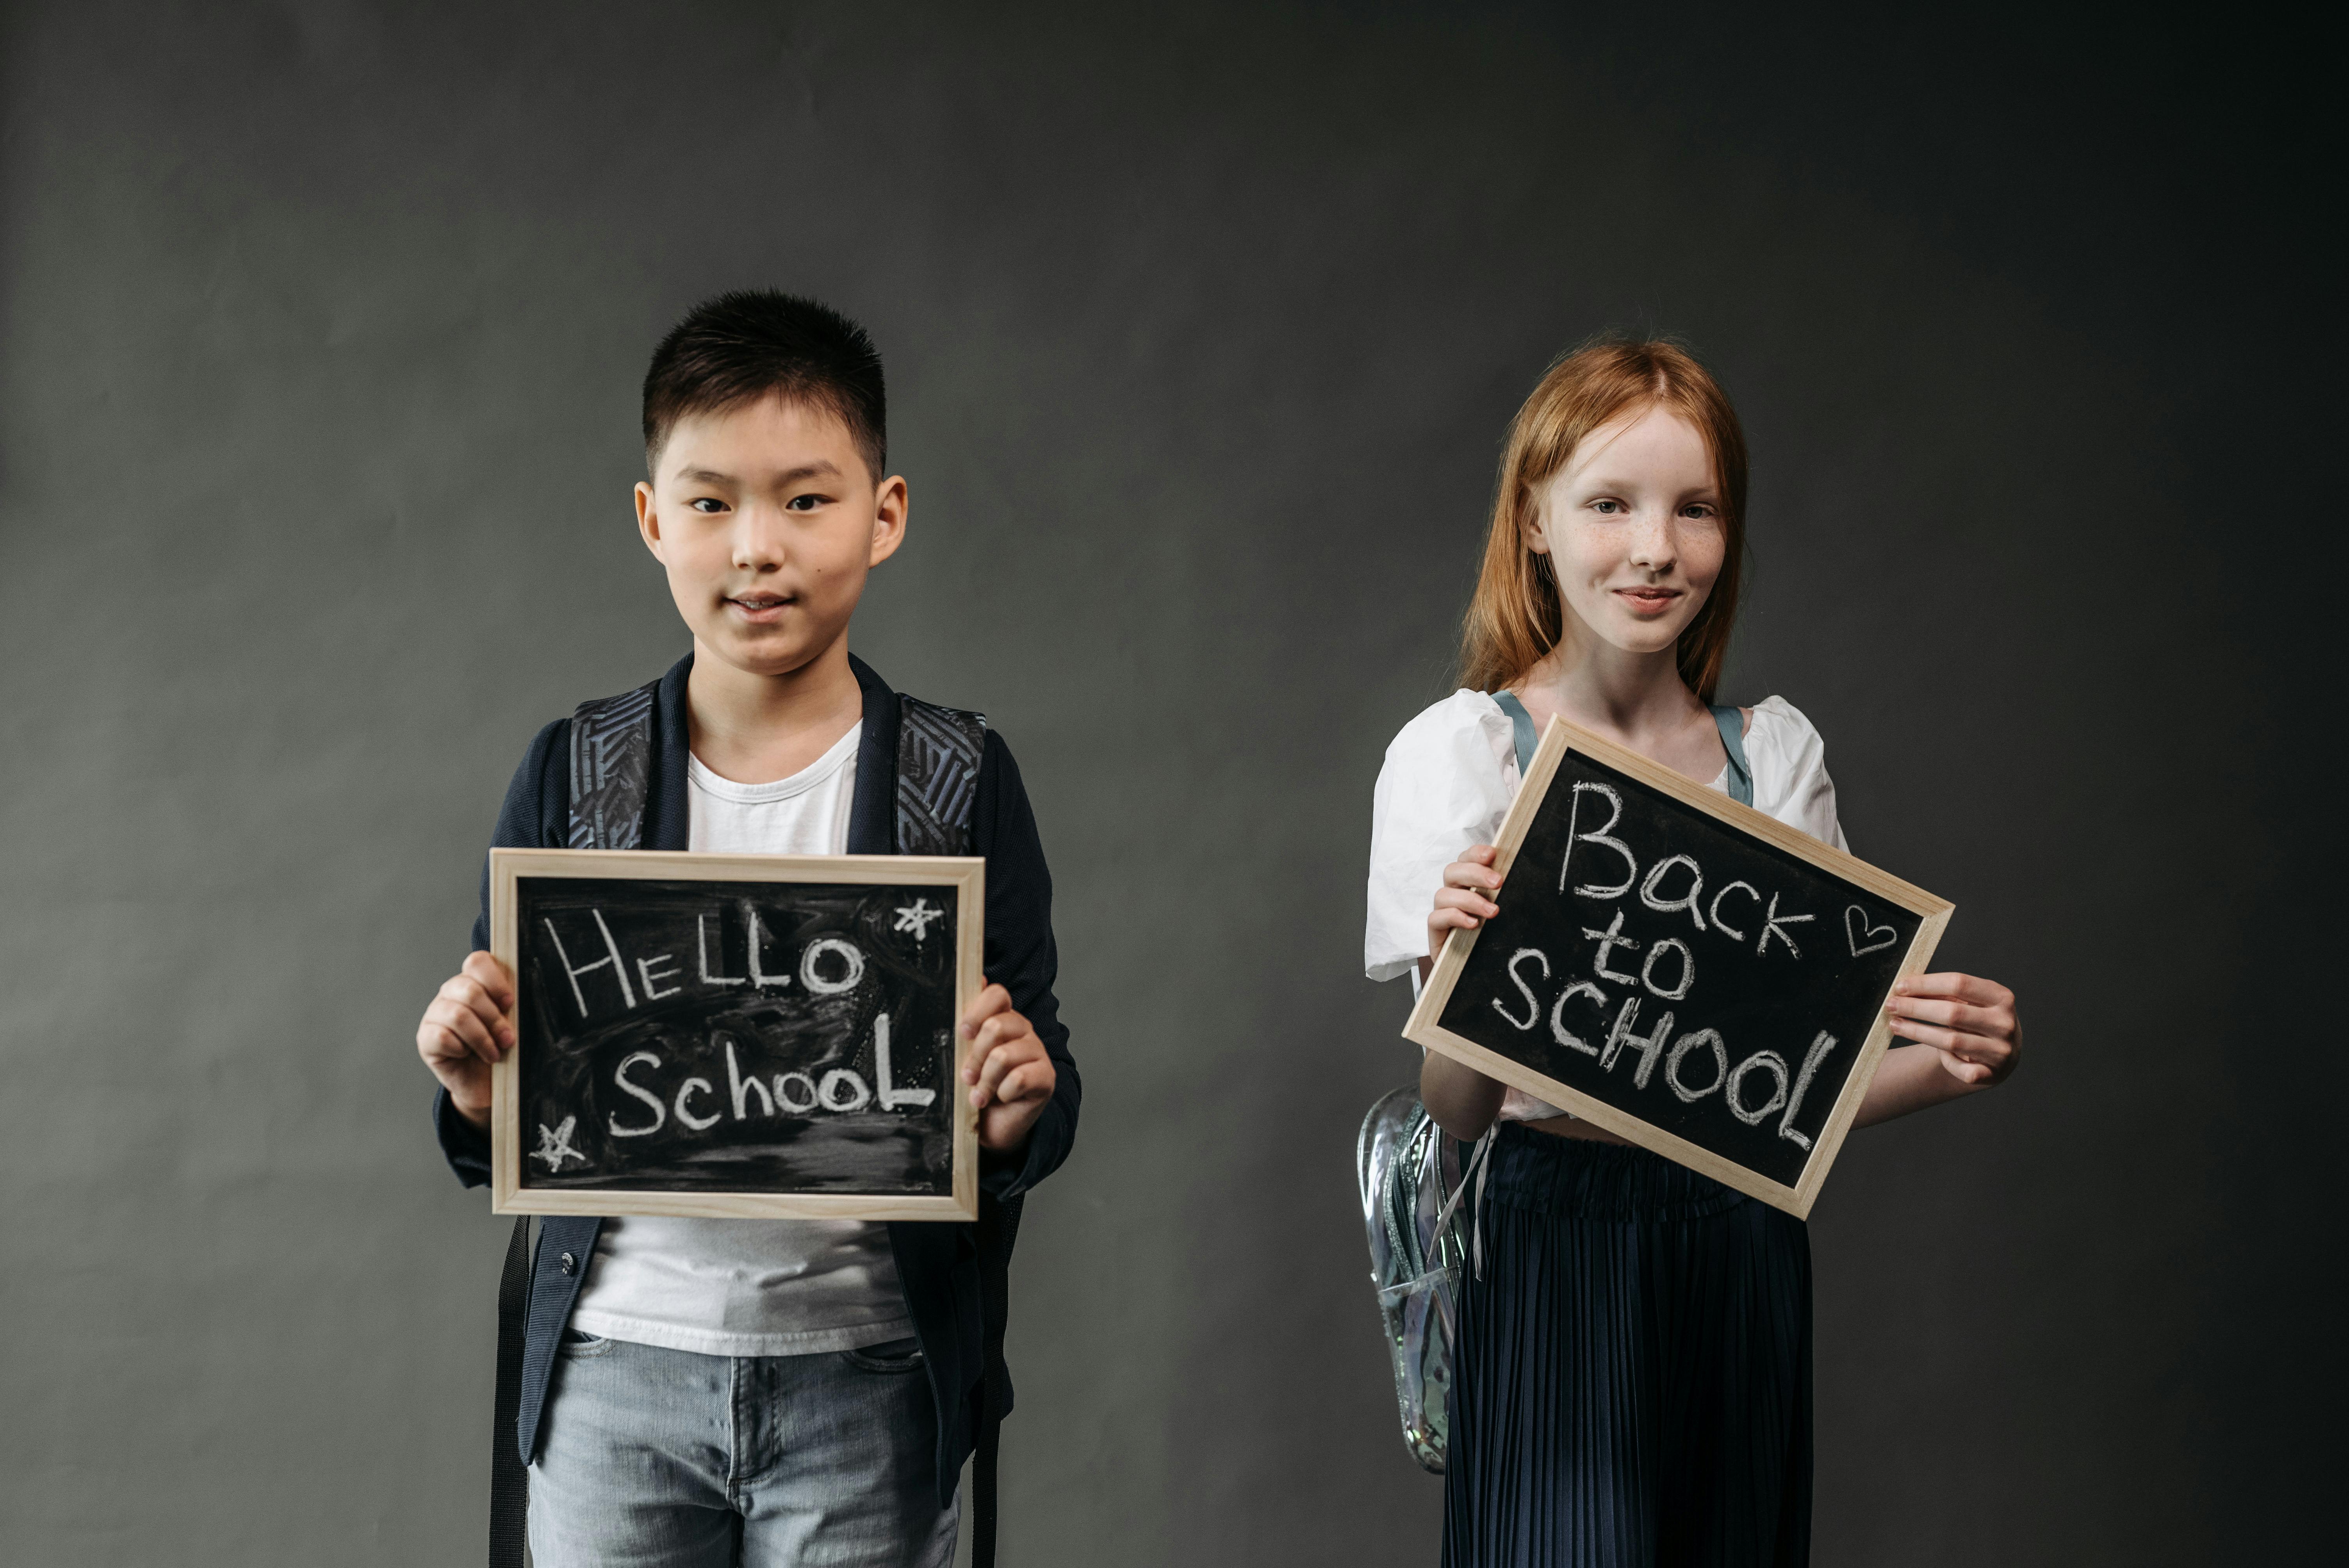 HeLLo
SchooL
Back
to
SCHOOL